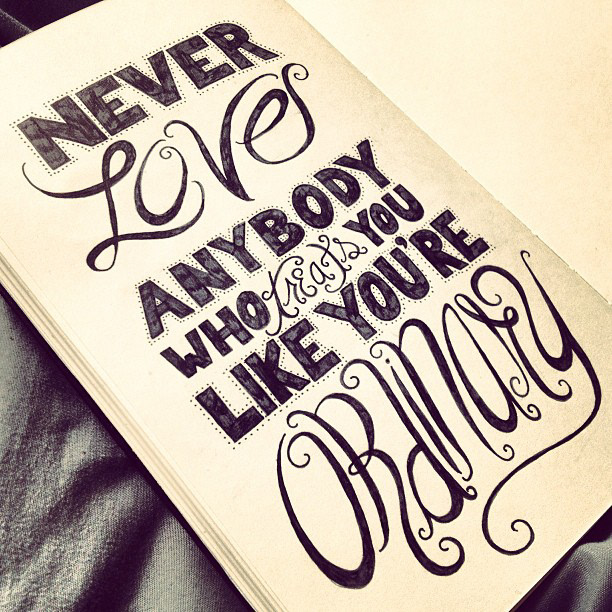 NEVER
LOVe
ANYBODY
WHO treats YOU
LIKE YOU'RE
ORdiNARY